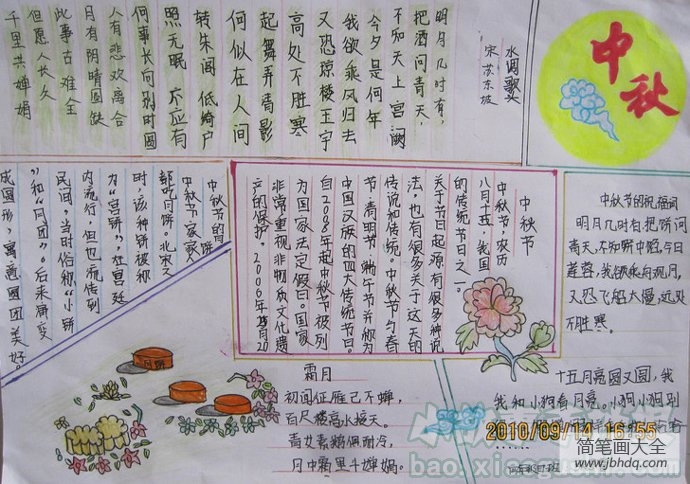 中秋
水调歌头
宋 苏东坡
明月几时有，
把酒问青天，
不知天上宫阙
今夕是何年
我欲乘风归去
又恐琼楼玉宇
高处不胜寒
起舞弄清影
何似在人间
转朱阁 低绮户
照无眠 不应有
何事长向别时圆
人有悲欢离合
月有阴晴圆缺
此事古难全
但愿人长久
千里共婵娟
中秋节
中秋节农历
八月十五，我国
的传统节日之一。
关于节日起源有很多种说
法，也有很多关于这天的
传说和传统。中秋节与春
节 清明节 端午节并称为
中国汉族的四大传统节日。
自2008年起中秋节被列
为国家法定假日。国家
非常重视非物质文化遗
产的保护，2006年5月20
中秋节的
中秋节家家
都吃月饼。北宋
时，该种饼被称
为“宫饼”，在宫廷
内流行，但也流传到
民间，当时俗称“小饼
”和“月团”。后来演变
成圆形，寓意团团美好。
中秋节的祝福词
明月几时有，把饼问
青天，不知饼中馅，今日
莲蓉，我欲乘舟观月，
又恐飞船太慢，远处
不胜寒。
霜月
初闻征雁已不蝉，
百尺楼高水接天。
青女素娥俱耐冷，
月中霜里斗婵娟。
十五月亮圆又圆，我
我和小狗看月亮。小狗小狗别
2010/09/14 16:55
……
简笔画大全
www.jbhdq.com